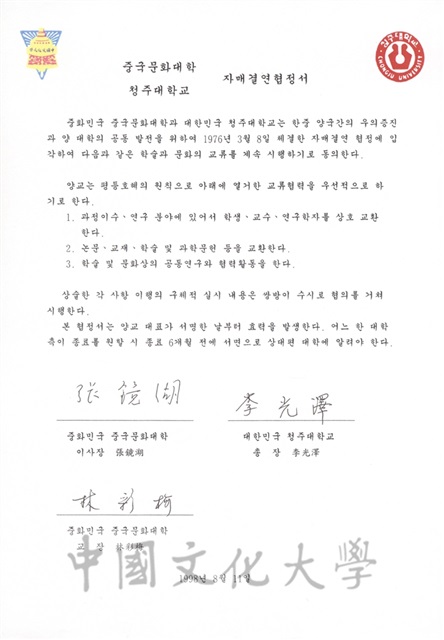 중국문화대학
청주대학교
자매결연협정서
청주대학교
CHONGJU UNIVERSITY
중화민국 중국문화대학과 대한민국 청주대학교는 한중 양국간의 우의증진
과 양 대학의 공동 발전을 위하여 1976년 3월 8일 체결한 자매결연 협정에 입
각하여 다음과 같은 학술과 문화의 교류를 계속 시행하기로 동의한다.
양교는 평등호혜의 원칙으로 아래에 열거한 교류협력을 우선적으로 하
기로 한다.
1. 과정이수、연구 분야에 있어서 학생、교수、연구학자를 상호 교환
한다.
2. 논문、교재、학술 및 과학문헌 등을 교환한다.
3. 학술 및 문화상의 공동연구와 협력활동을 한다.
상술한 각 사항 이행의 구체적 실시 내용은 쌍방이 수시로 협의를 거쳐
시행한다.
본 협정서는 양교 대표가 서명한 날부터 효력을 발생한다. 어느 한 대학
측이 종료를 원할 시 종료 6개월 전에 서면으로 상대편 대학에 알려야 한다.
張鏡湖
李光澤
중화민국 중국문화대학
이사장 張鏡湖
대한민국 청주대학교
총 장 李光澤
林彩梅
중화민국 중국문화대학
교 장 林彩梅
1998년 8월 11일
中國文化大學